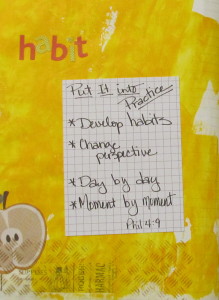 habit
Put It into
Practice
* Develop habits
* Change
perspective
* Day by day
* Moment by moment
Phil 4:9